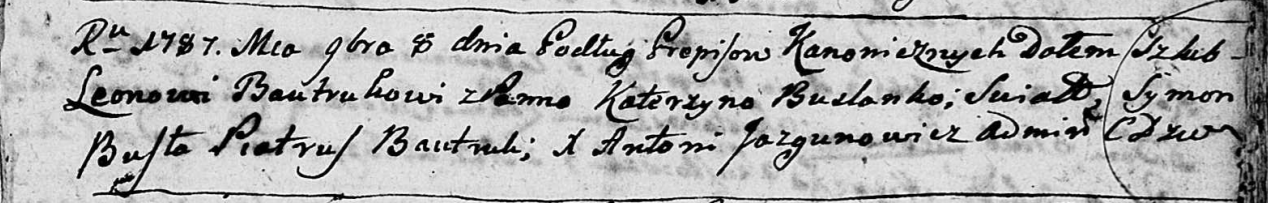 Ru 1787. Mca 9bra 8 dnia Podług Przepisow Kanonicznych Dałem Szlub
Leonowi Bautrukowi z Panno Katerzyno Buslanko; Swiatt, Symon
Busła Piatruś Bautruk; X Antoni Jazgunowicz Admin